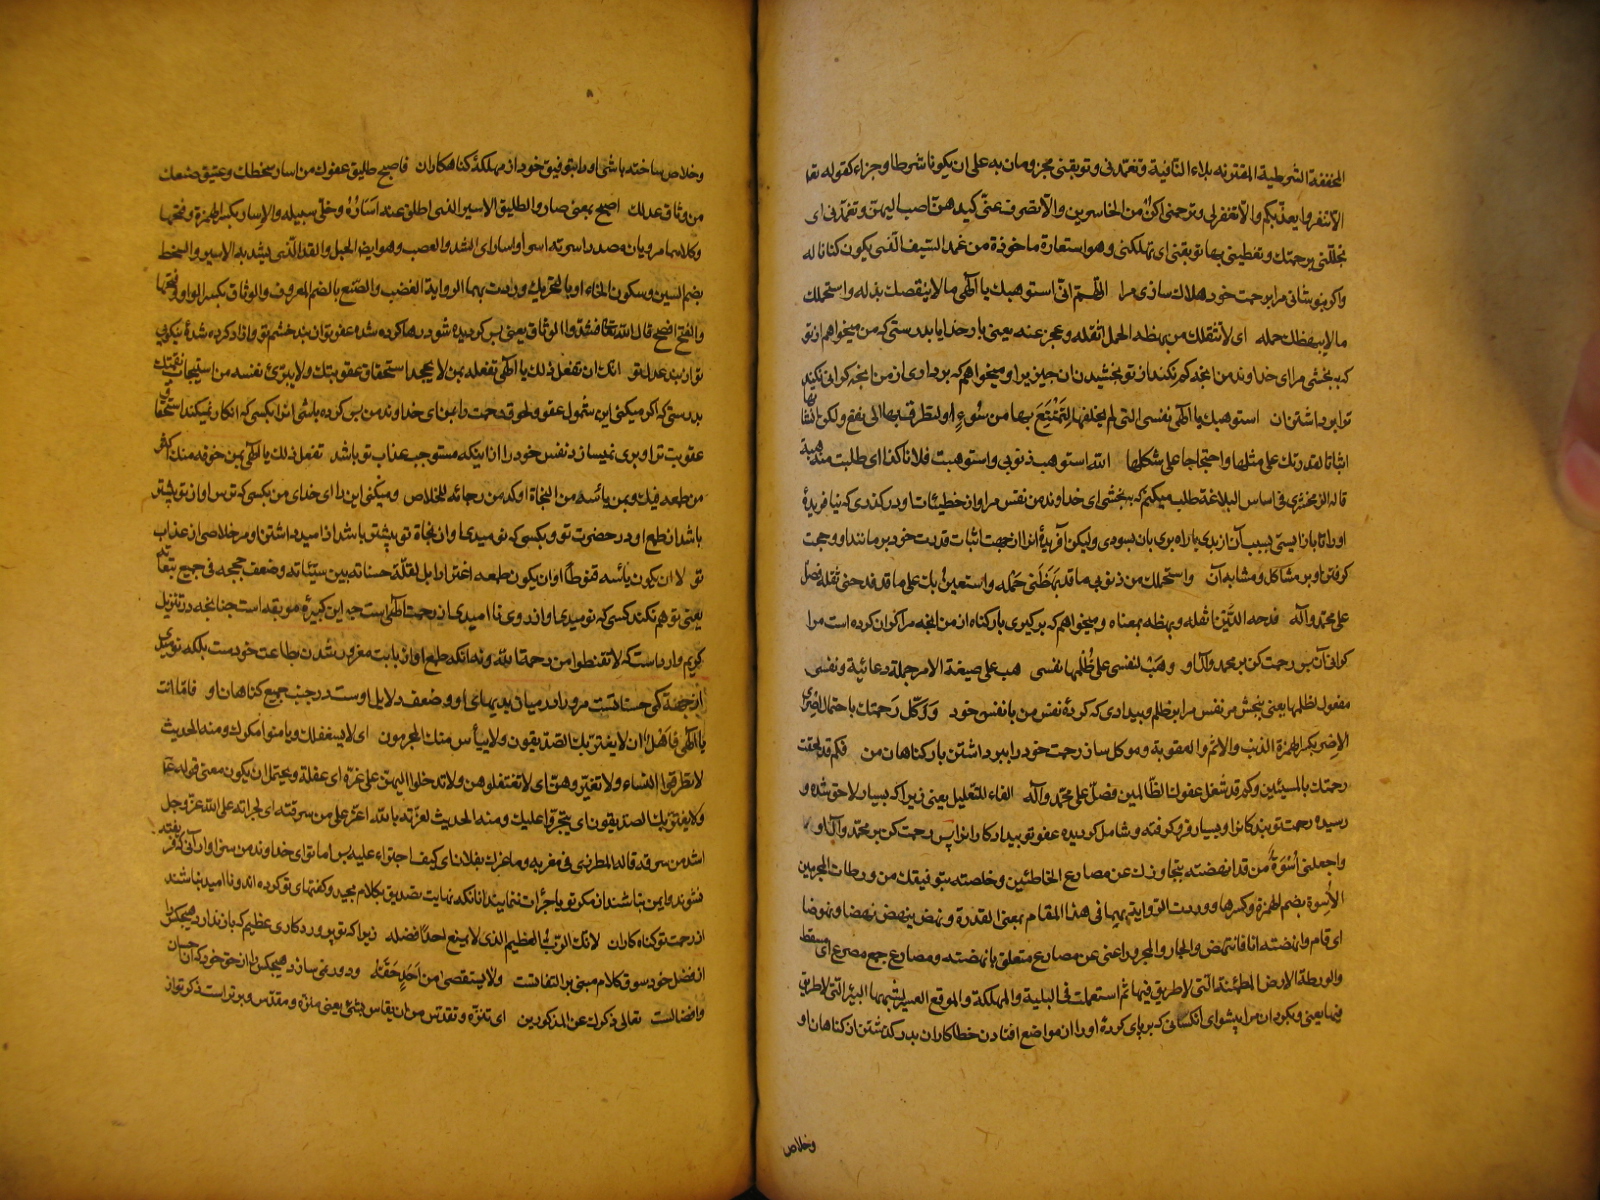 المخففة الشرطية المقترنه بلاء النافية وتغمدنی وتوبقنی مجزومان به علی ان يكونا شرطا وجزاء كقوله تعا
الا تنفروا يعذبكم والا تغفرلی وترحمنی اكن من الخاسرين والا تصرف عنی كيدهن اصب اليهن وتغمدنی ای
تجللنی برحمتك وتغطينی بها توبقنی ای تهلكنی وهو استعارة ماخوذة من غمد السيف الذی يكون كنانا له
واكر نپوشانی مرا برحمت خود هلاك سازی مرا اللهم انی استوهبك يا الهی ما لا ينقصك بذله واستحملك
ما لا يبهظك حمله ای لا تثقلك من بهظه الحمل اثقله وعجز عنه يعنی بار خدايا بدرستی كه من ميخواهم از تو
كه ببخشی مرا ای خداوند من انچه كم نكند از تو بخشيدن ان چيزيرا و ميخواهم كه برداری از من انچه كرانی نكند
تو را برداشتن ان استوهبك يا الهی نفسی التی لم تخلقها لتمتنع بها من سوء او لتطرق بها الی نفع ولكن انشاتها
اثباتا لقدرتك علی مثلها واحتجاجا علی شكلها الله استوهب ذنوبی واستوهبت فلانا كذا ای طلبت منه هبة
قاله الزمخشری فی اساس البلاغة طلب ميكنم كه ببخشی ای خداوند من نفس مرا و از خطيئات او درگذری كه نيافريدهٔ
او را تا باز ايستی بسبب آن از بدی يا راه بری بان بسودی وليكن آفريدهٔ انرا از جهت اثبات قدرت خود بر مانند او و حجت
كرفتن او بر مشاكل و مشابه آن واستحملك من ذنوبی ما قد بهظنی حمله واستعين بك علی ما قد فدحنی ثقله فصل
علی محمد وآله فدحه الدين اثقله وبهظه بمعناه و ميخواهم كه بركيری بار كناه از من انچه مرا كران كرده است مرا
كرانی آن پس رحمت كن بر محمد وآل او وهب لنفسی علی ظلمها نفسی هب علی صيغة الامر جملة دعائية ونفسی
مفعول لظلمها يعنی ببخش مر نفس مرا بر ظلم و بيدادی كه كردهٔ نفس من با نفس خود ووكل رحمتك باحتمال اصری
الاصر بكسر الهمزة الذنب والاثم والعقوبة و موكل ساز رحمت خود را ببرداشتن بار كناهان من فكم قد لحقت
رحمتك بالمسيئين وكم قد شمل عفوك الظالمين فصل علی محمد وآله الفاء للتعليل يعنی زيرا كه بسيار لاحق شده و
رسيده رحمت تو ببدكاران و بسيار فرو كرفته و شامل كرديده عفو تو بيدادكارانرا پس رحمت كن بر محمد وآل او
واجعلنی اسوة من قد انهضته بتجاوزك عن مصارع الخاطئين وخلصته بتوفيقك من ورطات المجرمين
الاسوة بضم الهمزة وكسرها ووردت الرواية بهما فی هذا المقام بمعنی القدوة ونهض ينهض نهضا ونهوضا
ای قام وانهضته انا فانتهض والجار والمجرور اعنی عن مصارع متعلق بانهضته ومصارع جمع مصرع ای مسقط
والورطة الارض المطمئنة التی لا طريق فيها ثم استعملت فی البلية والمهلكة والموقع العسير لشبهها البئر التی لا طريق
فيها يعنی و بكردان مرا پيشوای انكسانی كه برپای كردهٔ او را از مواضع افتادن خطاكاران بدركذشتن از كناهان او
وخلاص
وخلاص ساخته باشی او را بتوفيق خود از مهلكهٔ كناهكاران فاصبح طليق عفوك من اسار سخطك وعتيق صنعك
من وثاق عدلك اصبح بمعنی صار والطليق الاسير الذی اطلق عنه اساره وخلی سبيله والاسار بكسر الهمزة وفتحها
وكلاهما مرويان مصدر اسرته اسرا واسارا ای الشد والعصب وهو ايض الحبل والقد الذی يشد به الاسير والسخط
بضم السين وسكون الخاء او بالتحريك وردت بهما الرواية الغضب والصنع بالضم المعروف والوثاق بكسر الواو وفتحها
والفتح افصح قال الله تعا فشدوا الوثاق يعنی پس كرديده شود رها كرده شده عفو تو از بند خشم تو و ازاد كرده شدهٔ نيكويی
تو از بند عدل تو انك ان تفعل ذلك يا الهی تفعله بمن لا يجحد استحقاق عقوبتك ولا يبرئ نفسه من استيجاب نقمتك
بدرستی كه اكر ميكنی اين شمول عفو و لحوق رحمت را بمن ای خداوند من پس كرده باشی انرا بكسی كه انكار نميكند استحقاق
عقوبت ترا و بری نميسازد نفس خود را از اينكه مستوجب عذاب تو باشد تفعل ذلك يا الهی بمن خوفه منك اكثر
من طمعه فيك وبمن يأسه من النجاة اوكد من رجائه للخلاص و ميكنی اين را ای خدای من بكسی كه ترس او از تو بيشتر
باشد از طمع او در حضرت تو و بكسی كه نوميدی او از نجاة تو بيشتر باشد از اميد داشتن او مر خلاصی از عذاب
تو لا ان يكون يأسه قنوطا او ان يكون طمعه اغترارا بل لقلة حسناته بين سيئاته وضعف حججه فی جميع تبعاته
يعنی توهم نكند كسی كه نوميدی او از روی نا اميدی از رحمت الهی است چه اين كبيرهٔ موبقه است چنانچه در تنزيل
كريم وارد است كه لا تقنطوا من رحمة الله و نه انكه طمع او از بابت مغرور شدن بطاعت خودست بلكه نوميدی
از جهة كمی حسنات است مر او را در ميان بديهای او و ضعف دلايل اوست در جنب جميع كناهان او فاما انت
يا الهی فاهل ان لا يغتر بك الصديقون ولا ييأس منك المجرمون ای لا يستغفلك ويامنوا مكرك ومنه الحديث
لا تطرقوا النساء ولا تغتروهن ای لا تغتفلوهن ولا تدخلوا اليهن علی غرة ای غفلة ويحتمل ان يكون معنی قوله عم
ولا يغتر بك الصديقون ای يتجرؤا عليك ومنه الحديث لعزته بالله اعز علی من سرقته ای لجراته علی الله عز وجل
اشد من سرقه قاله المطرزی فی مغربه وما غرك بفلان ای كيف اجترات عليه پس اما تو ای خداوند من سزاوار آنی كه فريفته
نشوند و ايمن نباشند از مكر تو يا جرأت ننمايند انانكه نهايت تصديق بكلام مجيد و كفتهای تو كرده اند و نا اميد نباشند
از رحمت تو كناه كاران لانك الرب العظيم الذی لا يمنع احدا فضله زيرا كه تو پروردكاری عظيم كه باز ندارد هيچكس را
از فضل خود سوق كلام مبنی بر التفاتست ولا يستقصی من احد حقه و دور نمی سازد هيچكس را از حق خود كه احسان
وافضالست تعالی ذكرك عن المذكورين ای تنزه وتقدس من ان يقاس بشیء يعنی منزه و مقدس و برتر است ذكر تو از